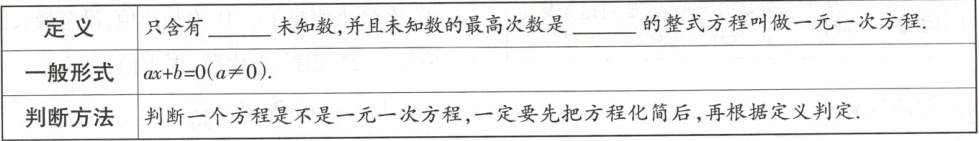 定义 只含有______未知数,并且未知数的最高次数是______的整式方程叫做一元一次方程.
一般形式 ax+b=0(a≠0).
判断方法 判断一个方程是不是一元一次方程,一定要先把方程化简后,再根据定义判定.